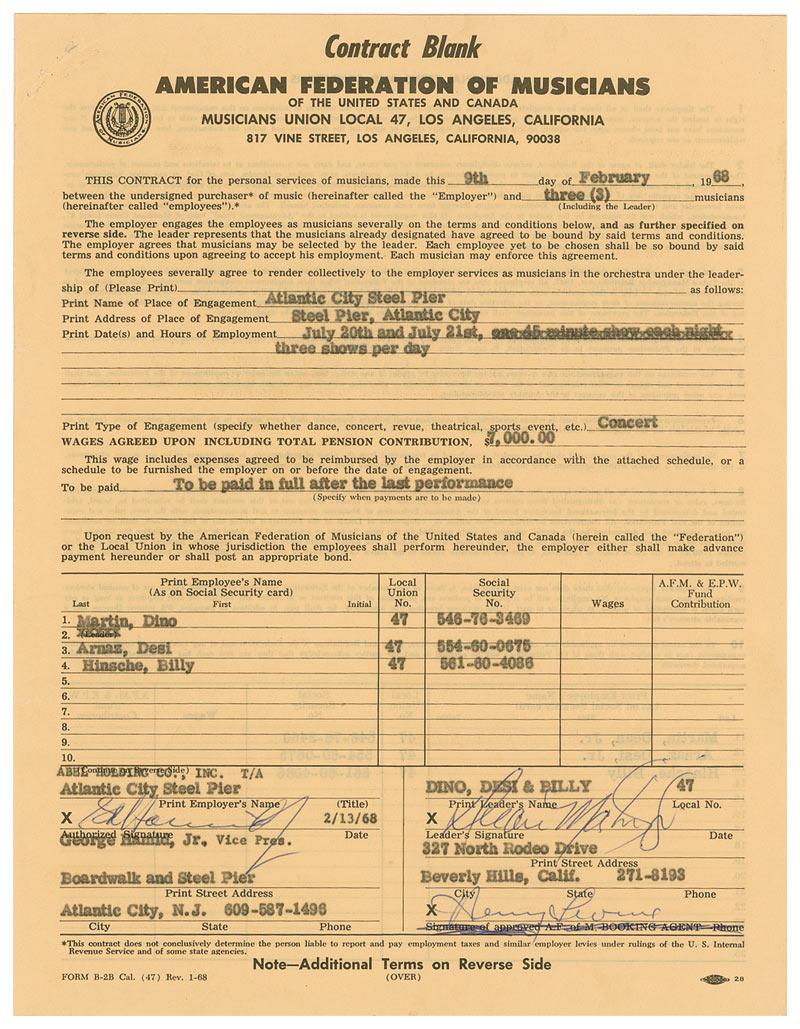 Contract Blank
AMERICAN FEDERATION OF MUSICIANS
OF THE UNITED STATES AND CANADA
MUSICIANS UNION LOCAL 47, LOS ANGELES, CALIFORNIA
817 VINE STREET, LOS ANGELES, CALIFORNIA, 90038
AMERICAN FEDERATION OF MUSICIANS
THIS CONTRACT for the personal services of musicians, made this 9th day of February, 1968,
between the undersigned purchaser* of music (hereinafter called the "Employer") and three (3) musicians
(hereinafter called "employees").* (Including the Leader)
The employer engages the employees as musicians severally on the terms and conditions below, and as further specified on
reverse side. The leader represents that the musicians already designated have agreed to be bound by said terms and conditions.
The employer agrees that musicians may be selected by the leader. Each employee yet to be chosen shall be so bound by said
terms and conditions upon agreeing to accept his employment. Each musician may enforce this agreement.
The employees severally agree to render collectively to the employer services as musicians in the orchestra under the leader-
ship of (Please Print) as follows:
Print Name of Place of Engagement Atlantic City Steel Pier
Print Address of Place of Engagement Steel Pier, Atlantic City
Print Date(s) and Hours of Employment July 20th and July 21st, one 45 minute show each night
three shows per day
Print Type of Engagement (specify whether dance, concert, revue, theatrical, sports event, etc.) Concert
WAGES AGREED UPON INCLUDING TOTAL PENSION CONTRIBUTION, $7,000.00
This wage includes expenses agreed to be reimbursed by the employer in accordance with the attached schedule, or a
schedule to be furnished the employer on or before the date of engagement.
To be paid To be paid in full after the last performance
(Specify when payments are to be made)
Upon request by the American Federation of Musicians of the United States and Canada (herein called the "Federation")
or the Local Union in whose jurisdiction the employees shall perform hereunder, the employer either shall make advance
payment hereunder or shall post an appropriate bond.
Print Employee's Name Local Social A.F.M. & E.P.W.
(As on Social Security card) Union Security Wages Fund
Last First Initial No. No. Contribution
1. Martin, Dino 47 546-76-3469
2. (Leader)
3. Arnaz, Desi 47 554-60-0675
4. Hinsche, Billy 47 561-60-4086
5.
6.
7.
8.
9.
10.
(Continued on Reverse Side)
ABEL HOLDING CO., INC. T/A
Atlantic City Steel Pier
Print Employer's Name (Title)
X 2/13/68
Authorized Signature Date
George Hamid, Jr. Vice Pres.
Boardwalk and Steel Pier
Print Street Address
Atlantic City, N.J. 609-587-1496
City State Phone
DINO, DESI & BILLY 47
Print Leader's Name Local No.
X Dean Martin Jr
Leader's Signature Date
327 North Rodeo Drive
Print Street Address
Beverly Hills, Calif. 271-8193
City State Phone
X Henry Levine
Signature of approved A.F. of M. BOOKING AGENT Phone
*This contract does not conclusively determine the person liable to report and pay employment taxes and similar employer levies under rulings of the U. S. Internal
Revenue Service and of some state agencies.
Note—Additional Terms on Reverse Side
FORM B-2B Cal. (47) Rev. 1-68 (OVER) 28